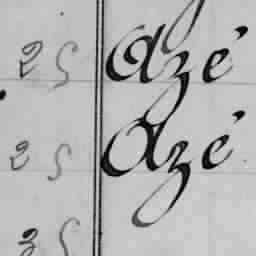 25 Azé
25 Azé